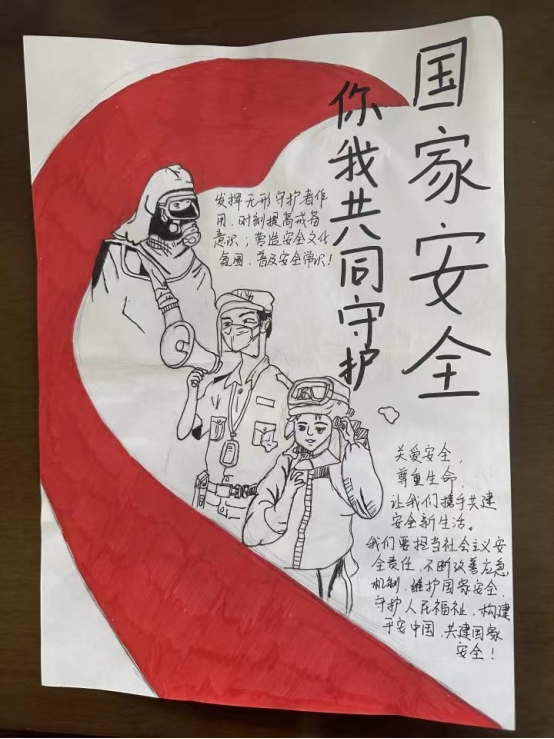 国家安全
你我共同守护
发挥无形守护者作
用，时刻提高戒备
意识；营造安全文化
氛围，普及安全常识！
关爱安全，
尊重生命，
让我们携手共建
安全新生活。
我们要担当社会主义安
全责任，不断改善应急
机制，维护国家安全，
守护人民福祉，构建
平安中国，共建国家
安全！